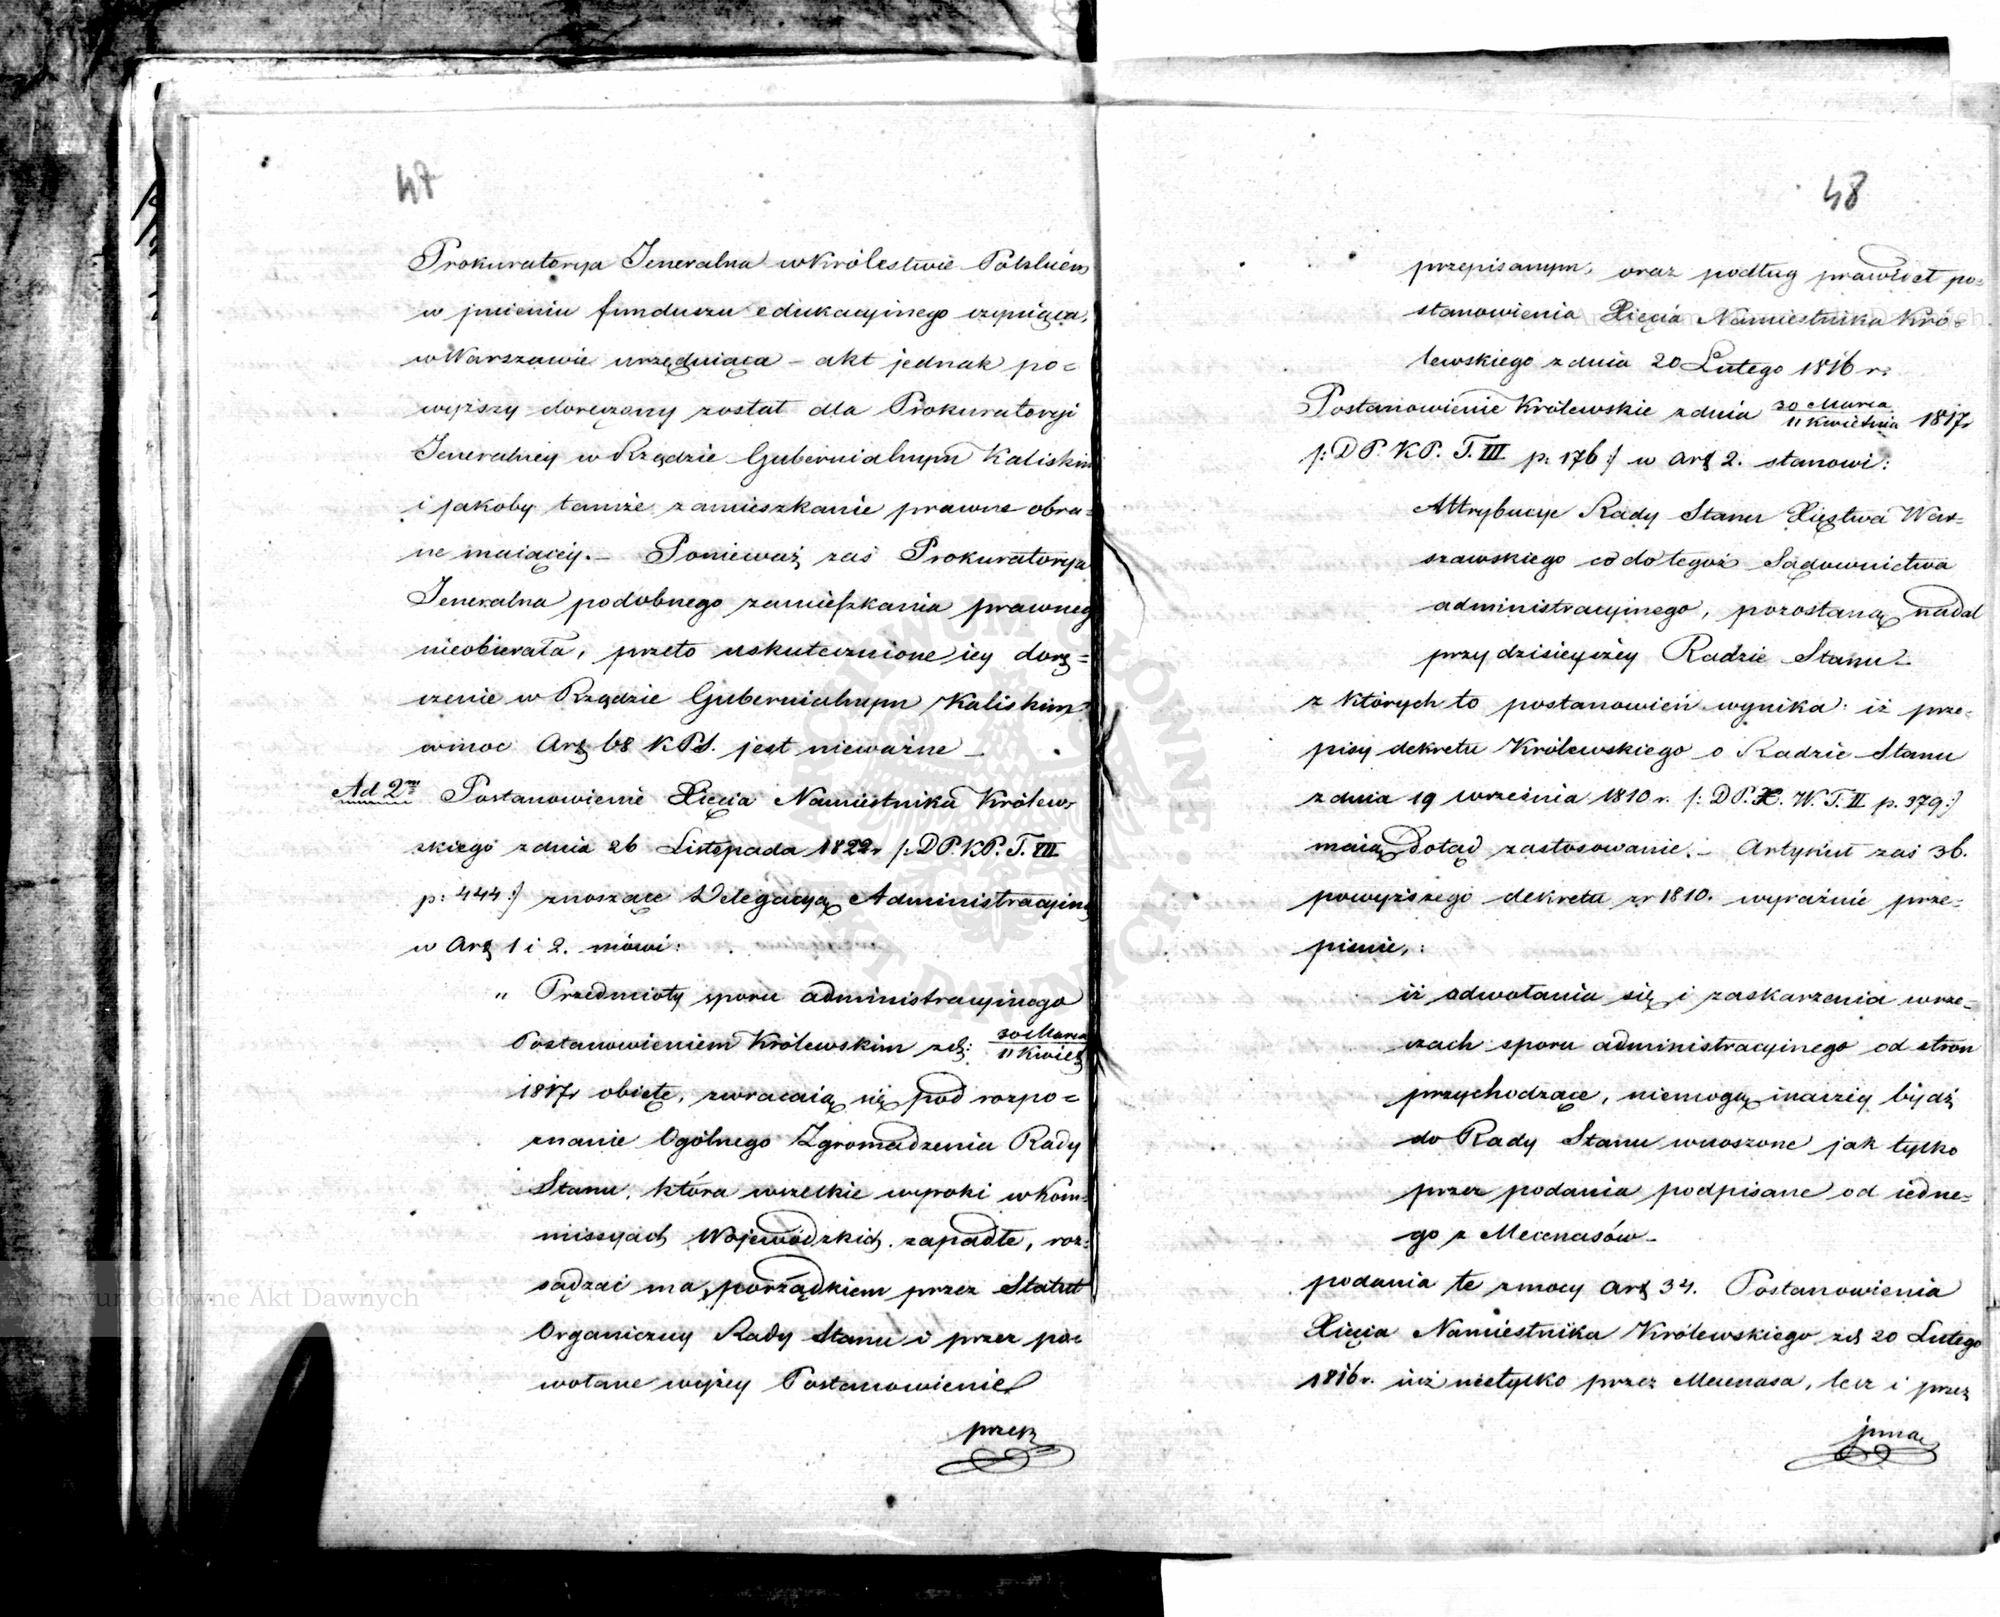 47
Prokuratorya Jeneralna w Królestwie Polskiém
w jmieniu funduszu edukacyinego czyniąca,
w Warszawie urzęduiąca – akt jednak po=
wyższy doręczony został dla Prokuratoryi
Jeneralney w Rządzie Gubernialnym Kaliskim
i jakoby tamże zamieszkanie prawne obra=
ne maiącéy. – Ponieważ zaś Prokuratorya
Jeneralna podobnego zamieszkania prawneg
nieobierała, przeto uskutecznione iey dorę=
czenie w Rządzie Gubernialnym Kaliskim
w moc Art 68 KPS. jest nieważne –
Ad 2m Postanowienie Xięcia Namiestnika Królew=
skiego z dnia 26 Listopada 1822r /: D P. KP. T. VII
p: 444 :/ znoszące Delegacyą Administracyiną
w Art 1 i 2. mówi:
„ Przedmioty sporu administracyinego
Postanowieniem Królewskim z d: 30 Marca / 11 Kwiet
1817r obięte, zwracaią się pod rozpo=
znanie Ogólnego Zgromadzenia Rady
Stanu, która wszelkie wyroki w Kom=
missyach Wojewódzkich zapadłe, roz=
sądzać ma porządkiem przez Statut
Organiczny Rady Stanu i przez po=
wołane wyżey Postanowienie
przep
48
przepisanym, oraz podług prawideł po=
stanowienia Xięcia Namiestnika Kró=
lewskiego z dnia 20 Lutego 1816 r:
Postanowienie Królewskie z dnia 30 Marca / 11 Kwietnia 1817r
/: D P. KP. T. III p. 176 :/ w Art 2. stanowi:
Attrybucye Rady Stanu Xięstwa War=
szawskiego co do tegoż Sądownictwa
administracyinego, pozostaną nadal
przy dzisieyszéy Radzie Stanu –
z których to postanowień wynika: iż prze=
pisy dekretu Królewskiego o Radzie Stanu
z dnia 19 września 1810 r. /: D P. X. W. T. II p. 379 :/
maią dotąd zastosowanie. – Artykuł zaś 36.
powyższego dekretu z r 1810. wyraźnie prze=
pisuie,:
iż odwołania się i zaskarzenia w rze=
czach sporu administracyinego od stron
przychodzące, niemogą inaczéy bydź
do Rady Stanu wnoszone jak tylko
przez podania podpisane od iedne=
go z Mecenasów –
podania te z mocy Art 34. Postanowienia
Xięcia Namiestnika Królewskiego z d 20 Lutego
1816 r. iuż nietylko przez Mecenasa, lecz i przez
jnną
Archiwum Główne Akt Dawnych
ARCHIWUM GŁÓWNE AKT DAWNYCH